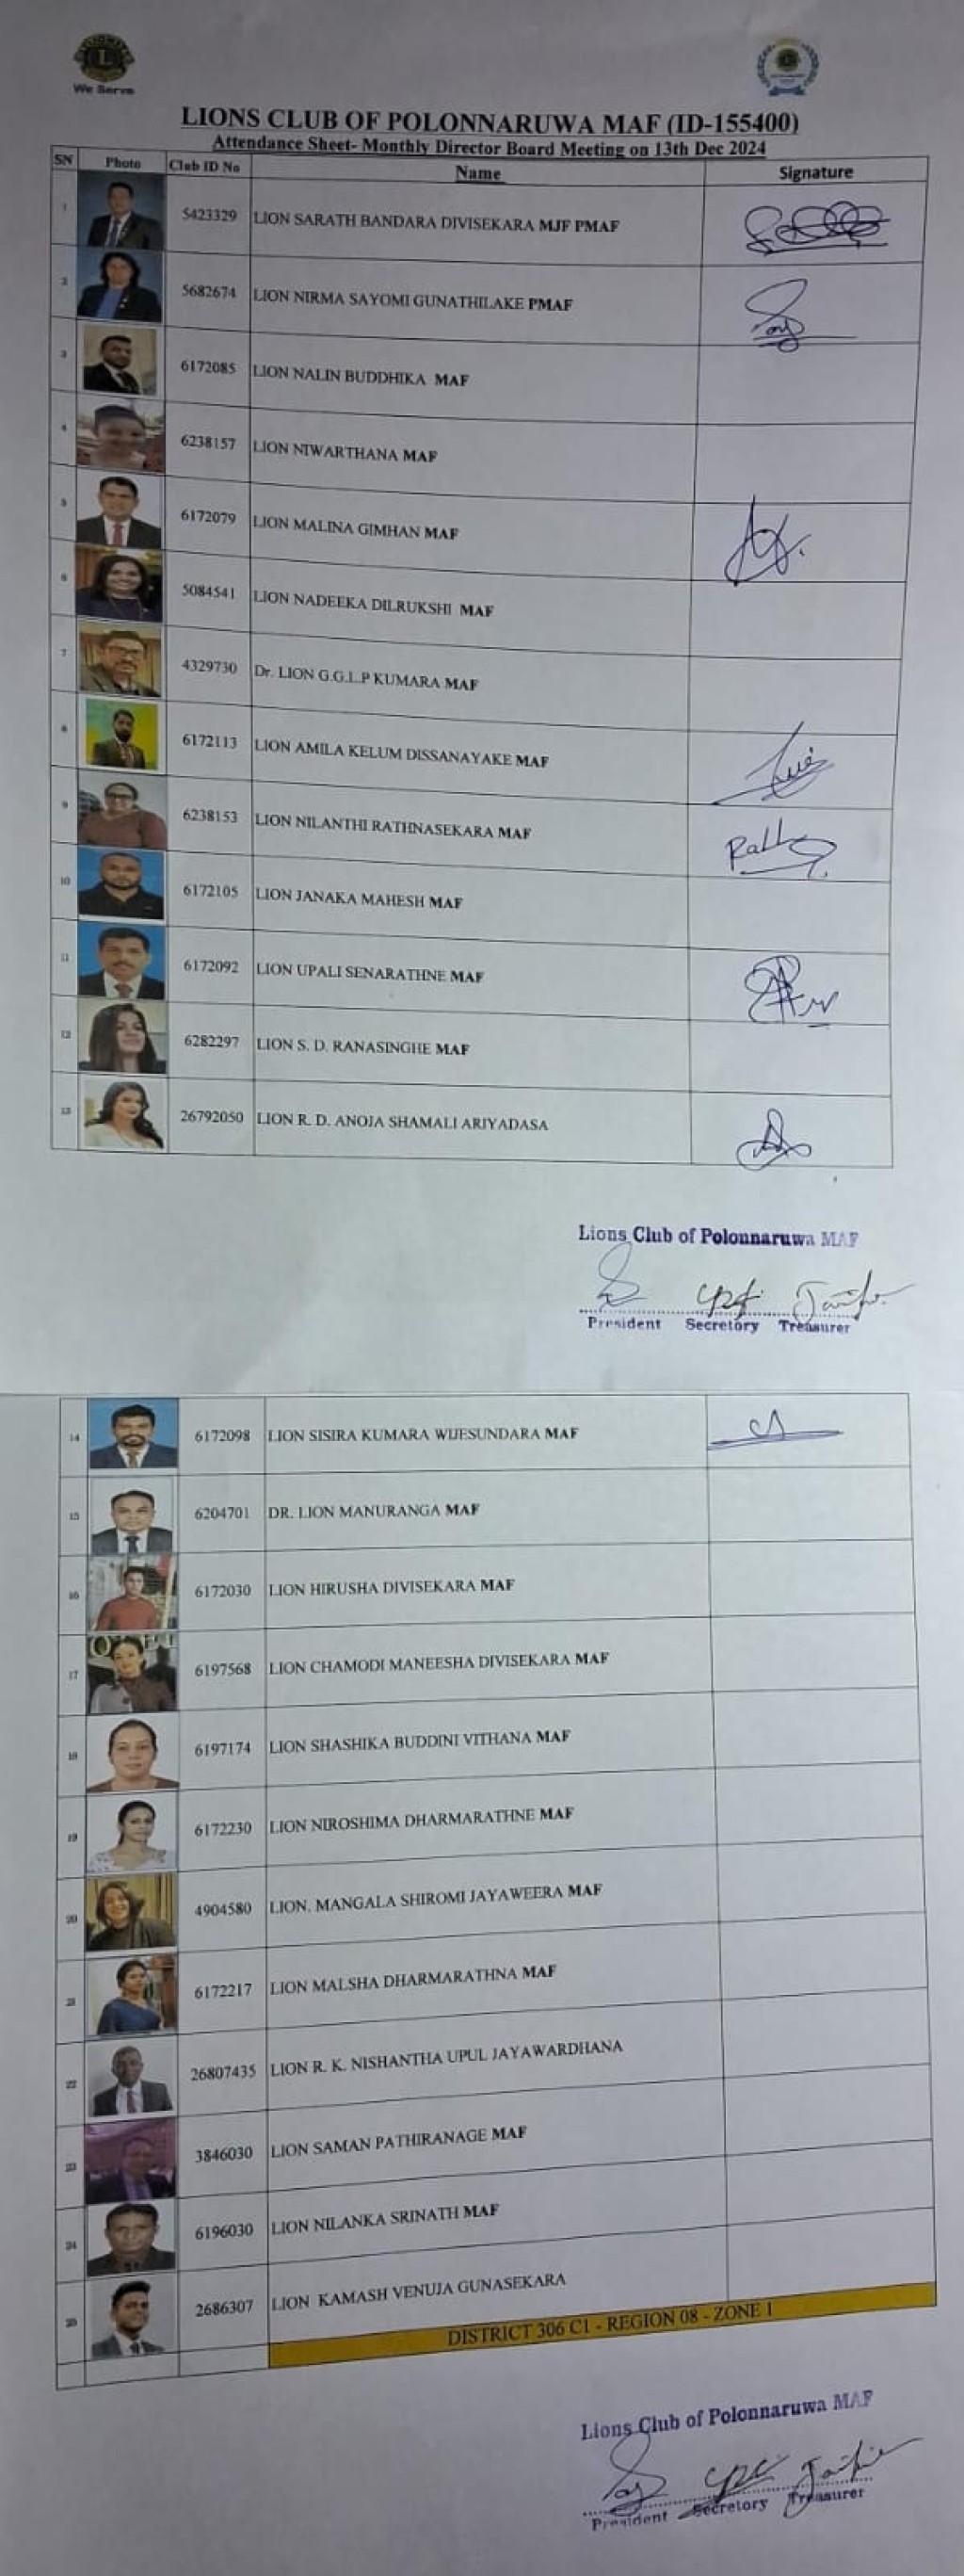 We Serve
LIONS CLUB OF POLONNARUWA MAF (ID-155400)
Attendance Sheet- Monthly Director Board Meeting on 13th Dec 2024
SN Photo Club ID No Name Signature
1 5423329 LION SARATH BANDARA DIVISEKARA MJF PMAF
2 5682674 LION NIRMA SAYOMI GUNATHILAKE PMAF
3 6172085 LION NALIN BUDDHIKA MAF
4 6238157 LION NIWARTHANA MAF
5 6172079 LION MALINA GIMHAN MAF
6 5084541 LION NADEEKA DILRUKSHI MAF
7 4329730 Dr. LION G.G.L.P KUMARA MAF
8 6172113 LION AMILA KELUM DISSANAYAKE MAF
9 6238153 LION NILANTHI RATHNASEKARA MAF
10 6172105 LION JANAKA MAHESH MAF
11 6172092 LION UPALI SENARATHNE MAF
12 6282297 LION S. D. RANASINGHE MAF
13 26792050 LION R. D. ANOJA SHAMALI ARIYADASA
Lions Club of Polonnaruwa MAF
President Secretory Treasurer
14 6172098 LION SISIRA KUMARA WIJESUNDARA MAF
15 6204701 DR. LION MANURANGA MAF
16 6172030 LION HIRUSHA DIVISEKARA MAF
17 6197568 LION CHAMODI MANEESHA DIVISEKARA MAF
18 6197174 LION SHASHIKA BUDDINI VITHANA MAF
19 6172230 LION NIROSHIMA DHARMARATHNE MAF
20 4904580 LION. MANGALA SHIROMI JAYAWEERA MAF
21 6172217 LION MALSHA DHARMARATHNA MAF
22 26807435 LION R. K. NISHANTHA UPUL JAYAWARDHANA
23 3846030 LION SAMAN PATHIRANAGE MAF
24 6196030 LION NILANKA SRINATH MAF
25 2686307 LION KAMASH VENUJA GUNASEKARA
DISTRICT 306 C1 - REGION 08 - ZONE 1
Lions Club of Polonnaruwa MAF
President Secretory Treasurer